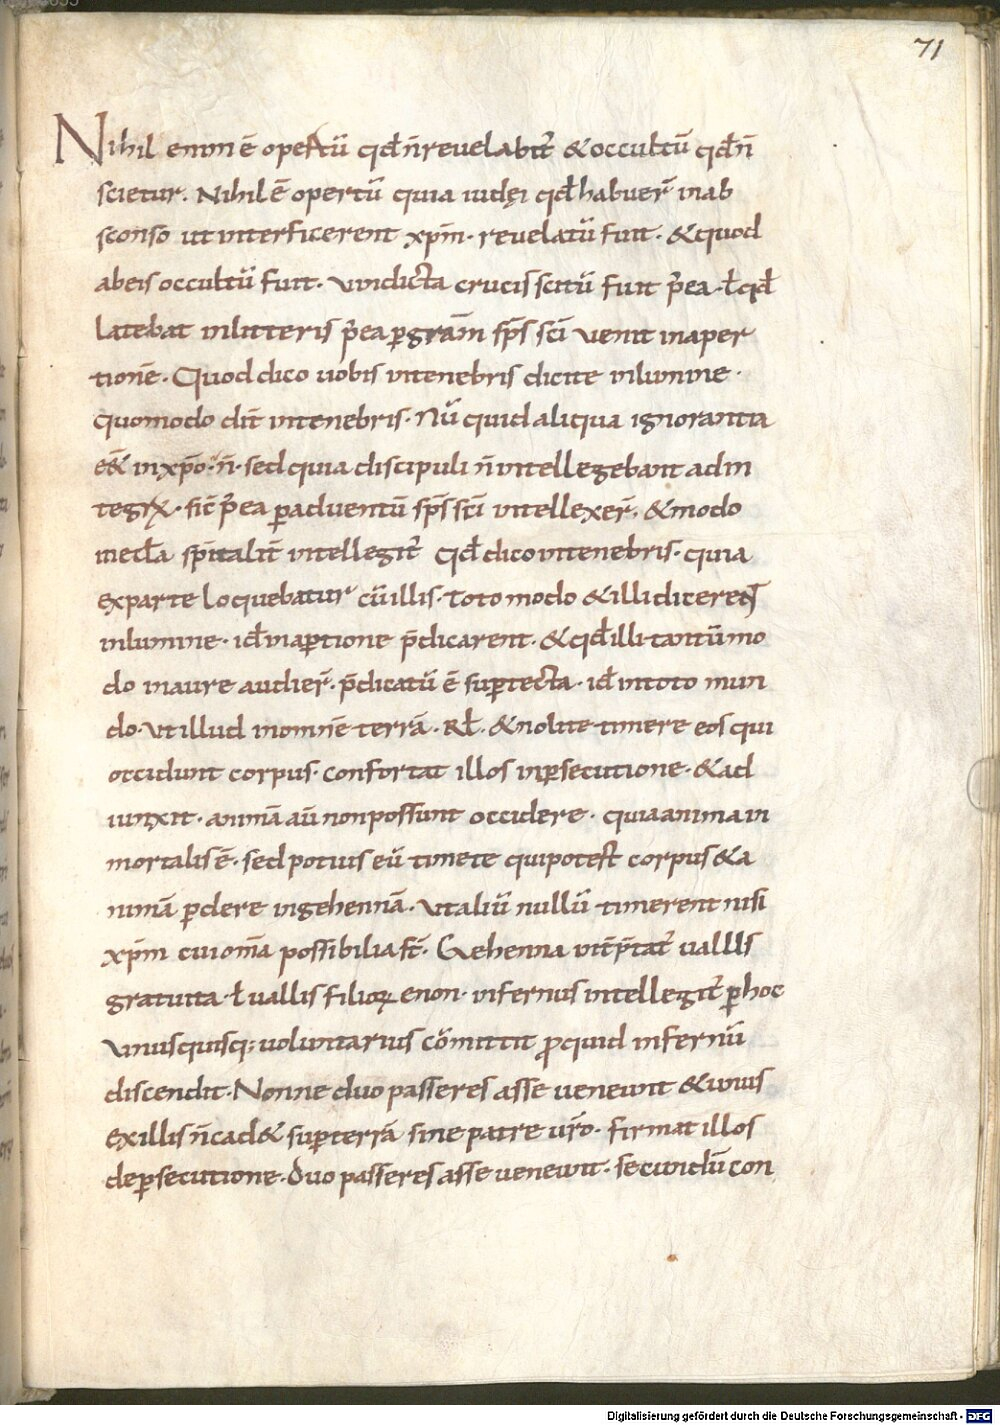 71
Nihil enim ē opertū qd̄ n̄ revelabit᷒ & occultū qd̄ n̄
scietur. Nihil ē opertū quia iudęi qd̄ habuer̄ in ab
sconso ut interficerent xp̄m. revelatū fuit. & quod
ab eis occultū fuit. vindicta crucis scitū fuit p̄ea. ł qd̄
latebat in litteris p̄ea ꝑ gratiā sp̄s sc̄i venit in aper
tionē. Quod dico vobis in tenebris dicite in lumine.
quomodo dix̄ in tenebris. Nū quid aliqua ignorantia
eēt in xp̄o. n̄. sed quia discipuli n̄ intellegebant ad in
tegrū. sic̄ p̄ea ꝑ adventū sp̄s sc̄i intellexer̄. & modo
in eccl̄a sp̄italit̄ intellegit᷒ qd̄ dico in tenebris. quia
ex parte loquebatur cū illis. toto modo & illi dicerent
in lumine. id̄ in aꝑtione p̄dicarent. & qd̄ illi tantū mo
do in aure audier̄. p̄dicatū ē suꝑ tecta. id̄ in toto mun
do. ut illud in omnē terrā. Rł. & nolite timere eos qui
occidunt corpus. confortat illos in ꝑsecutione. & ad
iunxit. animā aū non possunt occidere. quia anima in
mortalis ē. sed potius eū timete qui potest corpus & a
nimā ꝑdere in gehennā. ut aliū nullū timerent nisi
xp̄m cui om̄a possibilia st̄. Gehenna int̄p̄tat᷒ vallis
gratuita. ł vallis filioꝝ enon. infernus intellegit᷒ ꝑ hoc
unusquisq; voluntarius cōmittit ꝓ quid in infernū
discendit. Nonne duo passeres asse veneunt & unus
ex illis n̄ cad& suꝑ terrā sine patre vr̄o. firmat illos
de ꝑsecutione. Duo passeres asse veneunt. secundū con
Digitalisierung gefördert durch die Deutsche Forschungsgemeinschaft - DFG